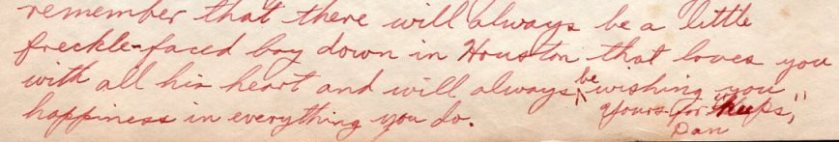 remember that there will always be a little
freckle-faced boy down in Houston that loves you
with all his heart and will always be wishing you
happiness in everything you do.
Yours for "keeps,"
Dan